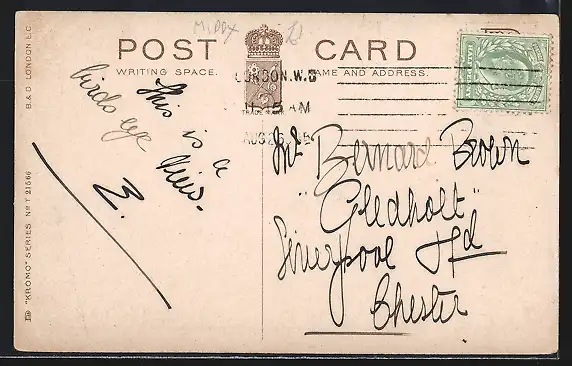 POST CARD
WRITING SPACE.
NAME AND ADDRESS.
TRADE MARK
MIDDX
LONDON. W.
11.15 AM
AUG 26
B & D. LONDON E.C.
"KROMO" SERIES No T 21566
This is a
birds eye
view.
Mr Bernard Brown
"Gledholt"
Liverpool Rd
Chester